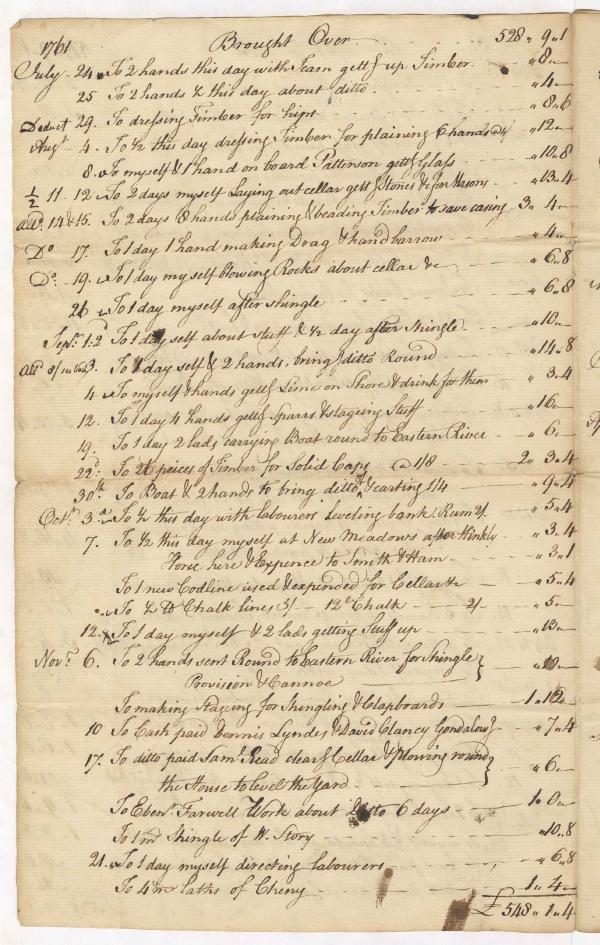 1761 Brought Over 528 " 9 " 1
July 24 To 2 hands this day with Team gettg up Timber " 8 "
25 To 2 hands ½ this day about ditto " 4 "
Deduct 29. To dressing Timber for hipt " 8 " 6
Augt 4. To ½ this day dressing Timber for plaining 6 hands @ 4/ " 12 "
8. To myself & 1 hand on board Pattinson gettg Glass " 10 " 8
½ 11. 12. To 2 days myself Laying out cellar gettg Stones &c for Masons " 13 " 4
14 & 15. To 2 days 8 hands plaining & beading Timber to save casing 3 " 4 "
Do 17. To 1 day 1 hand making Drag & handbarrow " 4 "
Do 19. To 1 day myself blowing Rocks about cellar &c " 6 " 8
26 To 1 day myself after shingle " 6 " 8
Sepr 1. 2d To 1 day self about stuff & ½ day after Shingle " 10 "
3. To 1 day self & 2 hands, bringg ditto Round " 14 " 8
4 To myself & hands gettg Lime on Shore & drink for them " 3 " 4
12. To 1 day 4 hands gettg Sparrs & stageing Stuff " 16 "
19. To 1 day 2 lads carrying Boat round to Eastern River " 6 "
22d To 26 peices of Timber for Solid Caps @ 1/8 2 " 3 " 4
30th To Boat & 2 hands to bring ditto & carting 1/4 " 9 " 4
Octr 3d To ½ this day with labourers Leveling bank. Rum 2/. " 5 " 4
7. To ½ this day myself at New Meadows after Hinkly " 3 " 4
Horse here & Expence to Smith & Ham " 3 " 1
To 1 new Codline used & expended for Cellar &c " 5 " 4
To ½ Dº Chalk lines 3/ 12 Chalk 2/ " 5 "
12. To 1 day myself & 2 lads getting Stuff up " 13 "
Novr 6. To 2 hands sent Round to Eastern River for Shingle } " 10 "
Provision & Cannoe
To making Staging for Shingling & Clapboards 1 " 12 "
10 To Cash paid Dennis Lyndes & David Clancy Gondalow " 7 " 4
17. To ditto paid Saml Read clearg Cellar & plowing round } " 6 "
the House to level the Yard
To Ebenr Farwell Work about ditto 6 days 1 " 0 "
To 1 m Shingle of W. Story " 10 " 8
21. To 1 day myself directing labourers " 6 " 8
To 4 m laths of Cheny 1 " 4 "
£ 548 " 1 " 4